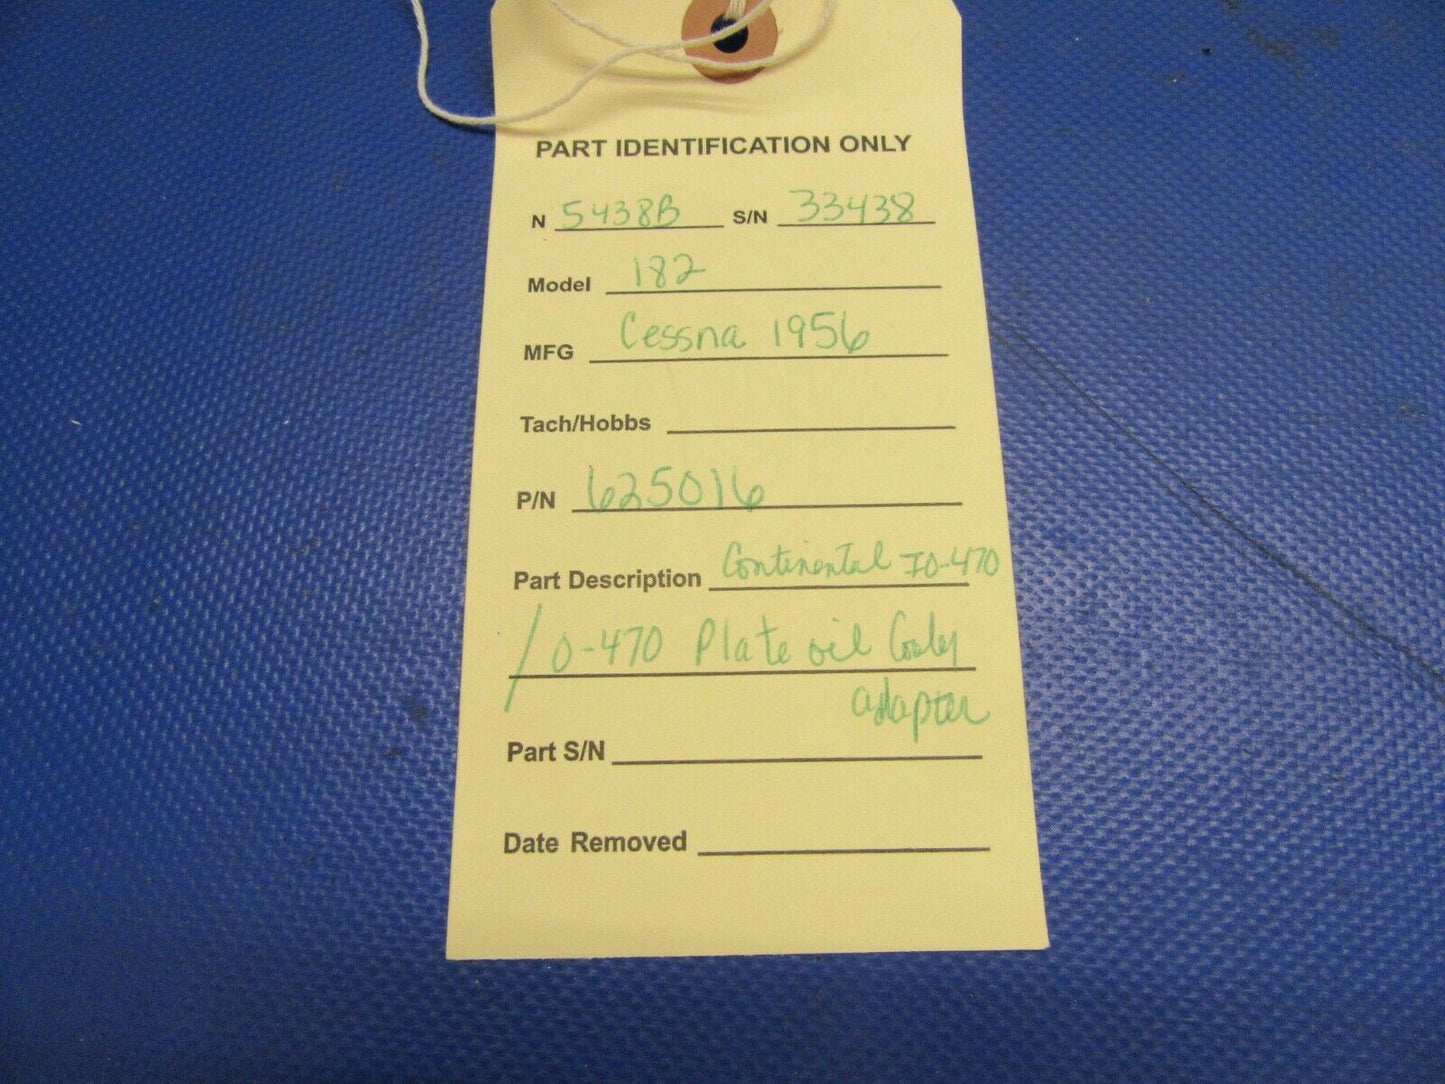 PART IDENTIFICATION ONLY
N 5438B S/N 33438
Model 182
MFG Cessna 1956
Tach/Hobbs
P/N 625016
Part Description Continental IO-470
/ O-470 Plate oil Cooler
adapter
Part S/N
Date Removed